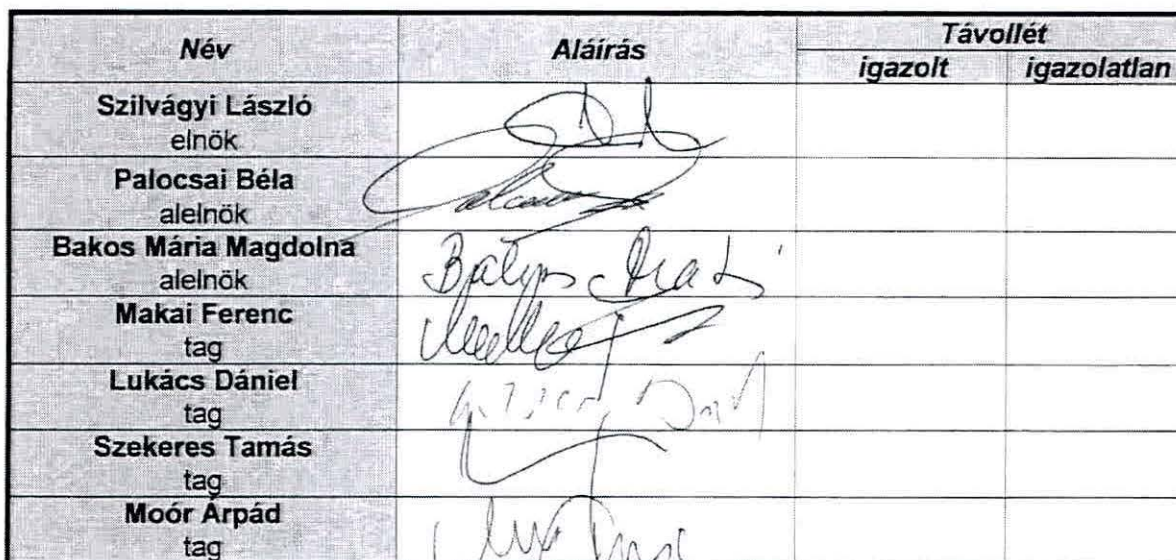 Név Aláírás Távollét
igazolt igazolatlan
Szilvágyi László
elnök
Palocsai Béla
alelnök
Bakos Mária Magdolna
alelnök
Makai Ferenc
tag
Lukács Dániel
tag
Szekeres Tamás
tag
Moór Árpád
tag